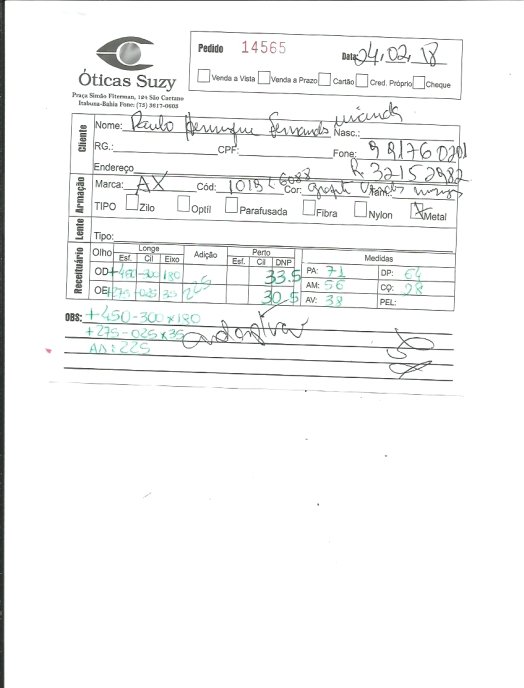 Pedido 14565 Data: 24,02,18
Venda a Vista Venda a Prazo Cartão Cred. Próprio Cheque
Óticas Suzy
Praça Simão Fiterman, 124 São Caetano
Itabuna-Bahia Fone: (73) 3617-0603
Cliente
Nome: Paulo Henrique Fernando miranda Nasc.:
RG.: CPF: Fone: 9 9176 0201
Endereço R. 32152982
Armação
Marca: AX Cód: 1019L 6088 Cor: Tam.:
TIPO Zilo Optil Parafusada Fibra Nylon X Metal
Lente
Tipo:
Receituário
Olho Longe Adição Perto Medidas
Esf. Cil Eixo Esf. Cil DNP
OD +450 -300 180 33.5 PA: 71 DP: 64
OE +275 -025 35 225 30.5 AM: 56 CO: 28
AV: 38 PEL:
OBS: +450-300x180
+275-025x35
AD: 225